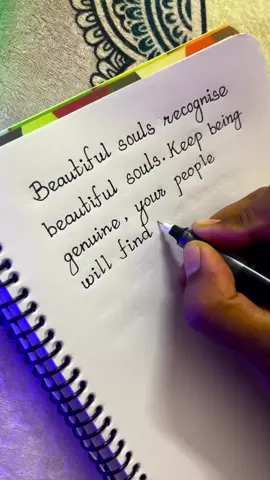 Beautiful souls recognise
beautiful souls. Keep being
genuine, your people
will find